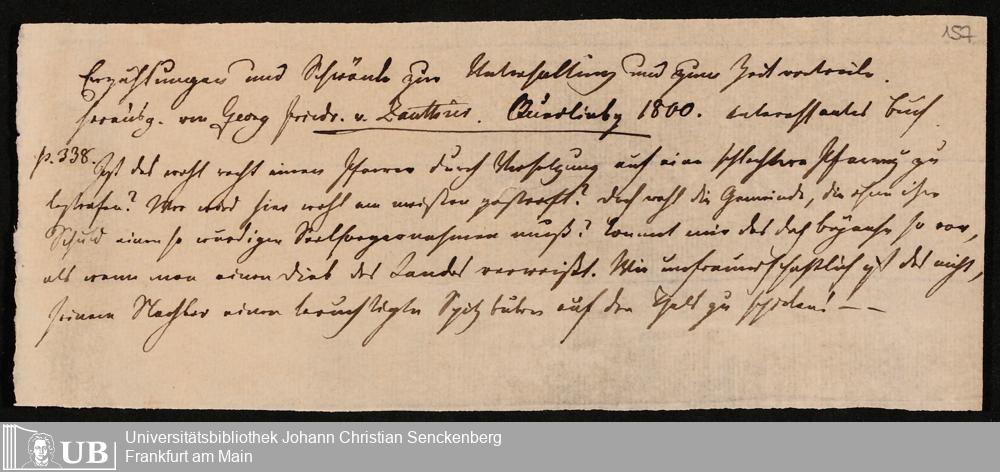 157
Erzählungen und Schwänke zur Unterhaltung und zum Zeitvertreib.
herausg. von Georg Friedr. v. Quedlinbg 1800. interessantes Buch.
p. 338. Ist das wohl recht einen Pfarrer durch Versetzung auf eine schlechtere Pfarrey zu
bestrafen? Wer wird hier wohl am meisten gestraft? doch wohl die Gemeinde, die ohne ihre
Schuld einen so würdigen Seelsorger nehmen muß? kommt mir das doch beynahe so vor,
als wenn man einen Dieb des Landes verweißt. Wie unfreundschaftlich ist das nicht,
seinem Nachbar einen berüchtigten Spitzbuben auf den Hals zu schicken! — —
UB
Universitätsbibliothek Johann Christian Senckenberg
Frankfurt am Main